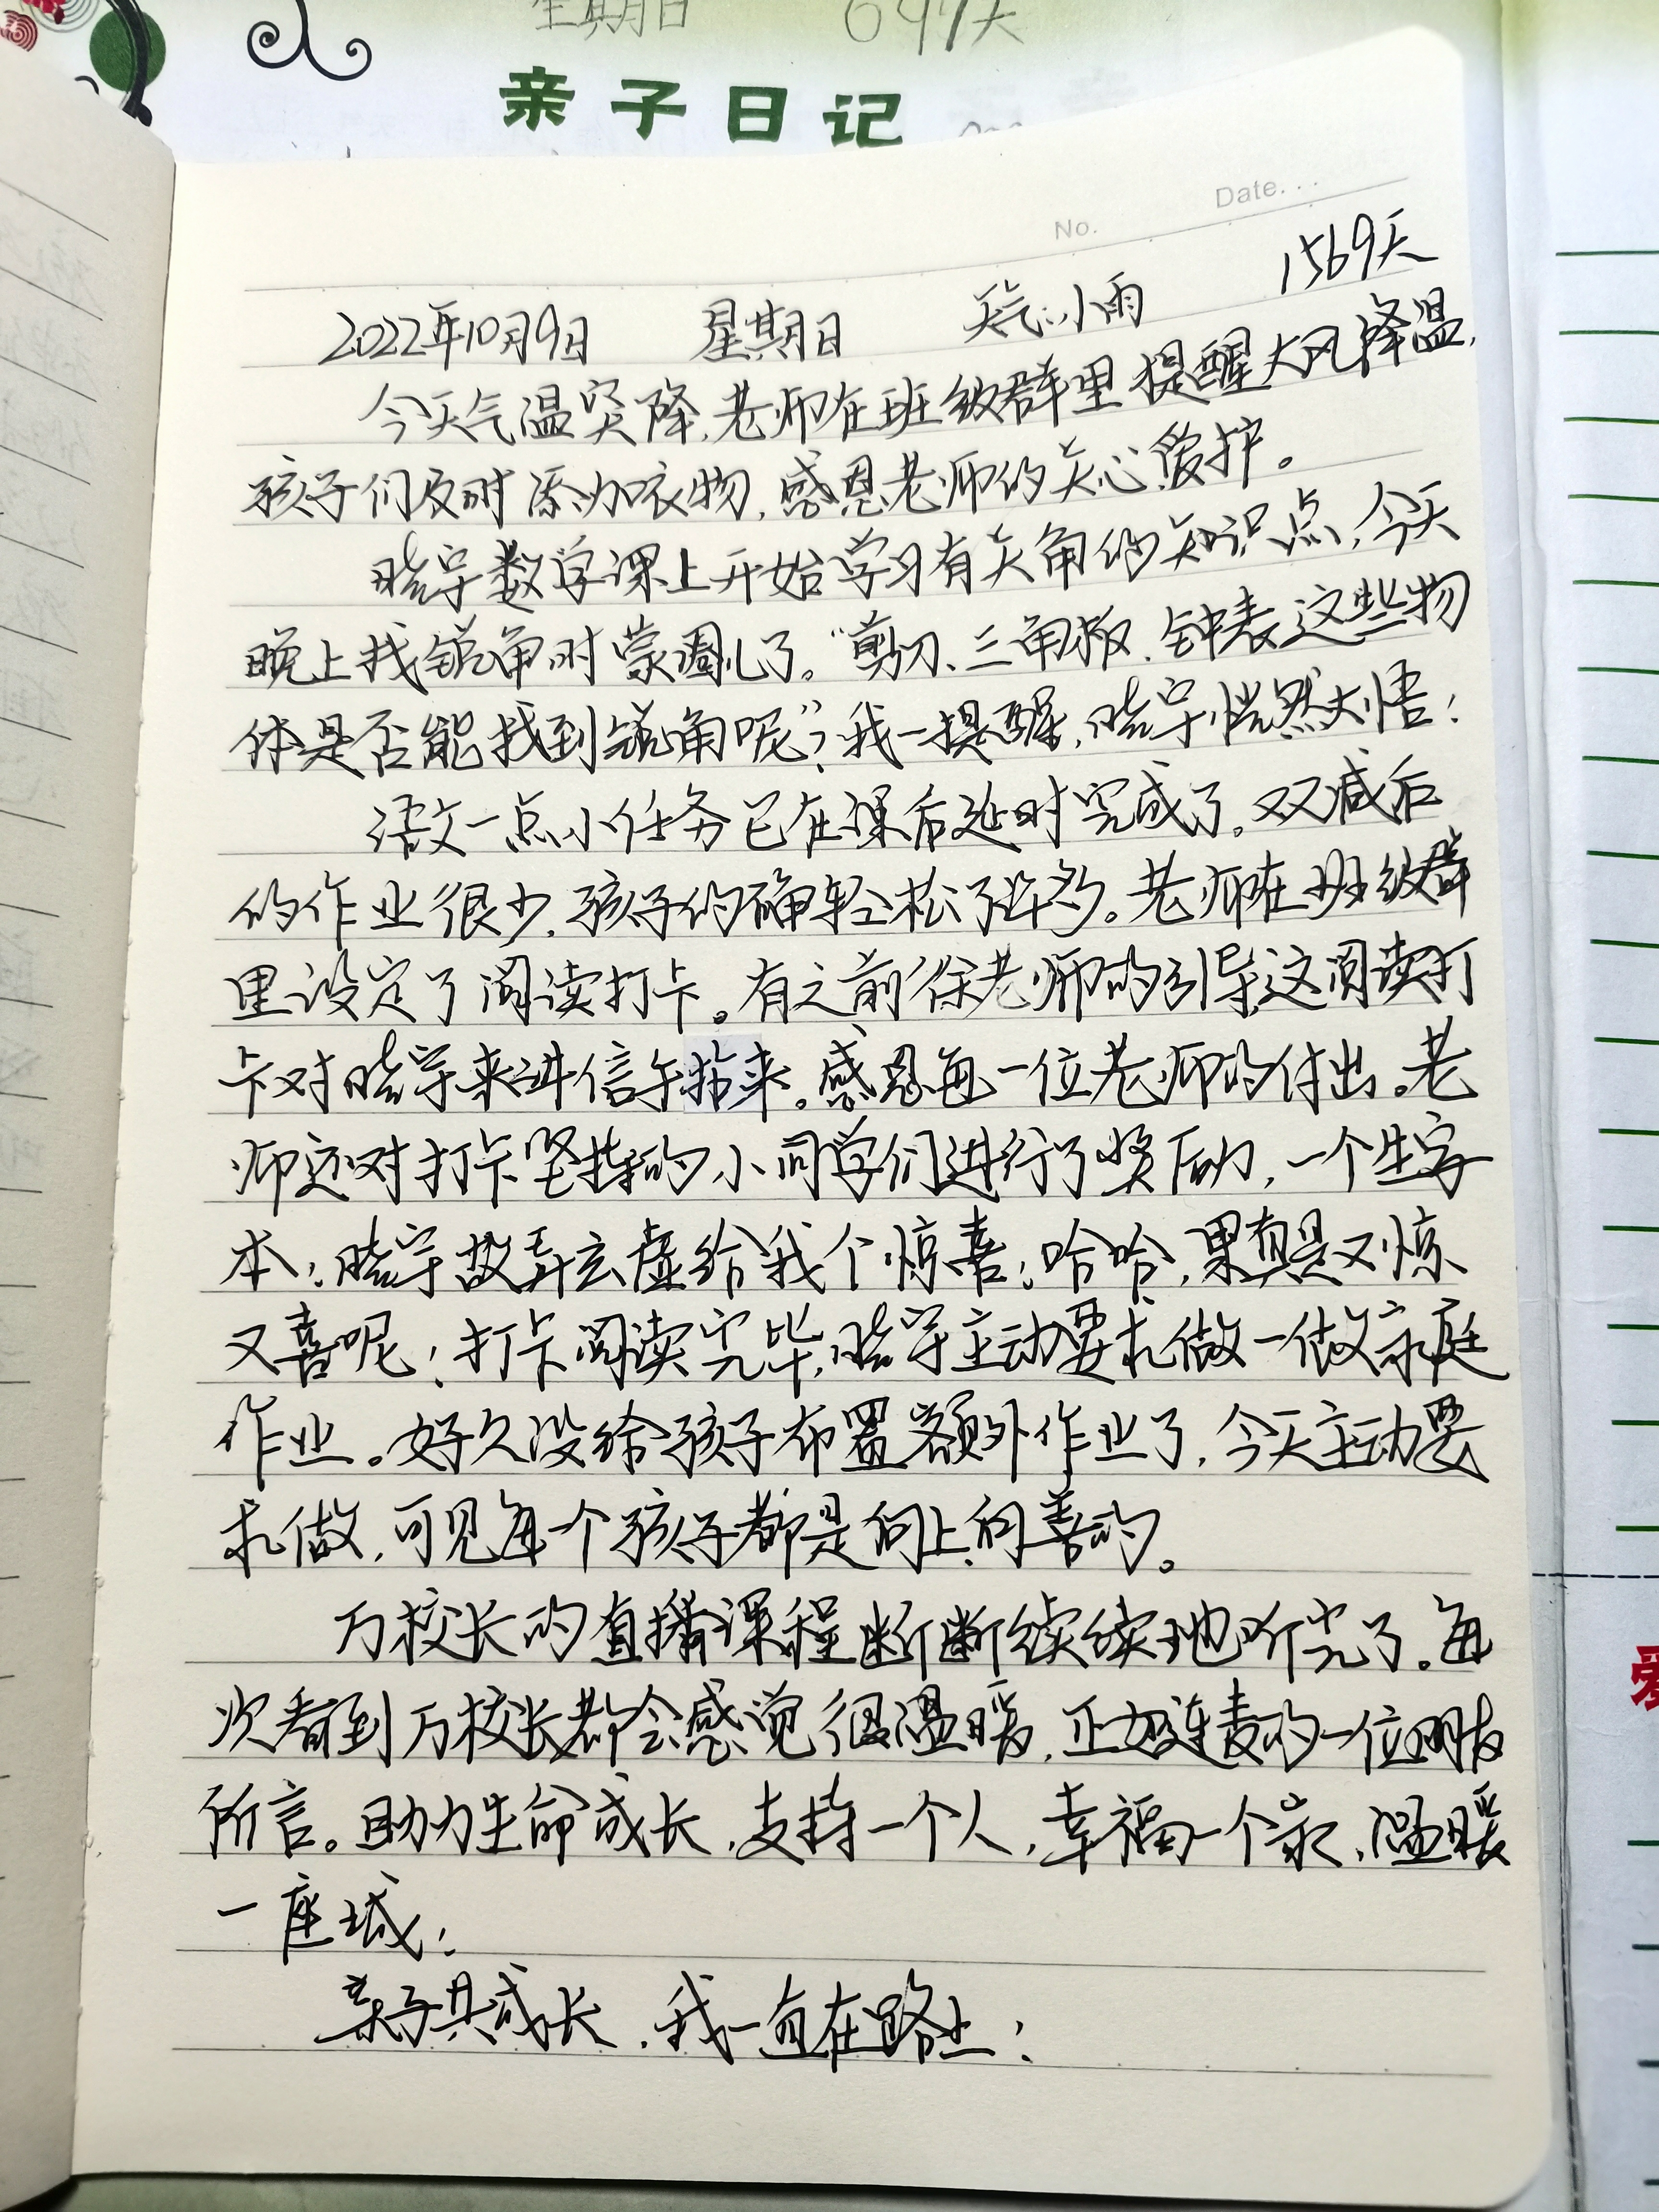 星期日 697天
亲子日记
Date...
No.
2022年10月9日 星期日 天气:小雨 1569天
今天气温突降,老师在班级群里提醒大风降温,
孩子们及时添加衣物,感恩老师的关心、爱护。
晓宇数学课上开始学习有关角的知识点,今天
晚上找锐角时蒙圈儿了。“剪刀、三角板、钟表这些物
体是否能找到锐角呢”?我一提醒,晓宇恍然大悟!
语文一点小任务已在课后延时完成了。双减后
的作业很少,孩子的确轻松了许多。老师在班级群
里设定了阅读打卡。有之前徐老师的引导,这阅读打
卡对晓宇来讲信手拈来。感恩每一位老师的付出。老
师还对打卡坚持的小同学们进行了奖励,一个生字
本,晓宇故弄玄虚给我个惊喜!哈哈,果真是又惊
又喜呢!打卡阅读完毕,晓宇主动要求做一做家庭
作业。好久没给孩子布置额外作业了,今天主动要
求做,可见每一个孩子都是向上、向善的。
万校长的直播课程断断续续地听完了。每
次看到万校长都会感觉很温暖,正如连麦的一位朋友
所言。助力生命成长,支持一个人,幸福一个家,温暖
一座城!
亲子共成长,我一直在路上!